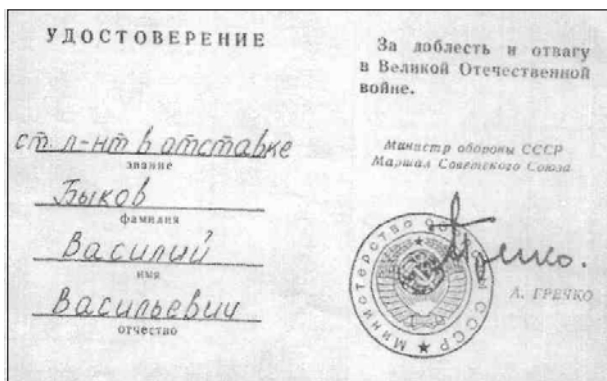 УДОСТОВЕРЕНИЕ
ст. л-нт в отставке
звание
Быков
фамилия
Василий
имя
Васильевич
отчество
За доблесть и отвагу
в Великой Отечественной
войне.
Министр обороны СССР
Маршал Советского Союза
Гречко.
А. ГРЕЧКО
Министерство обороны СССР